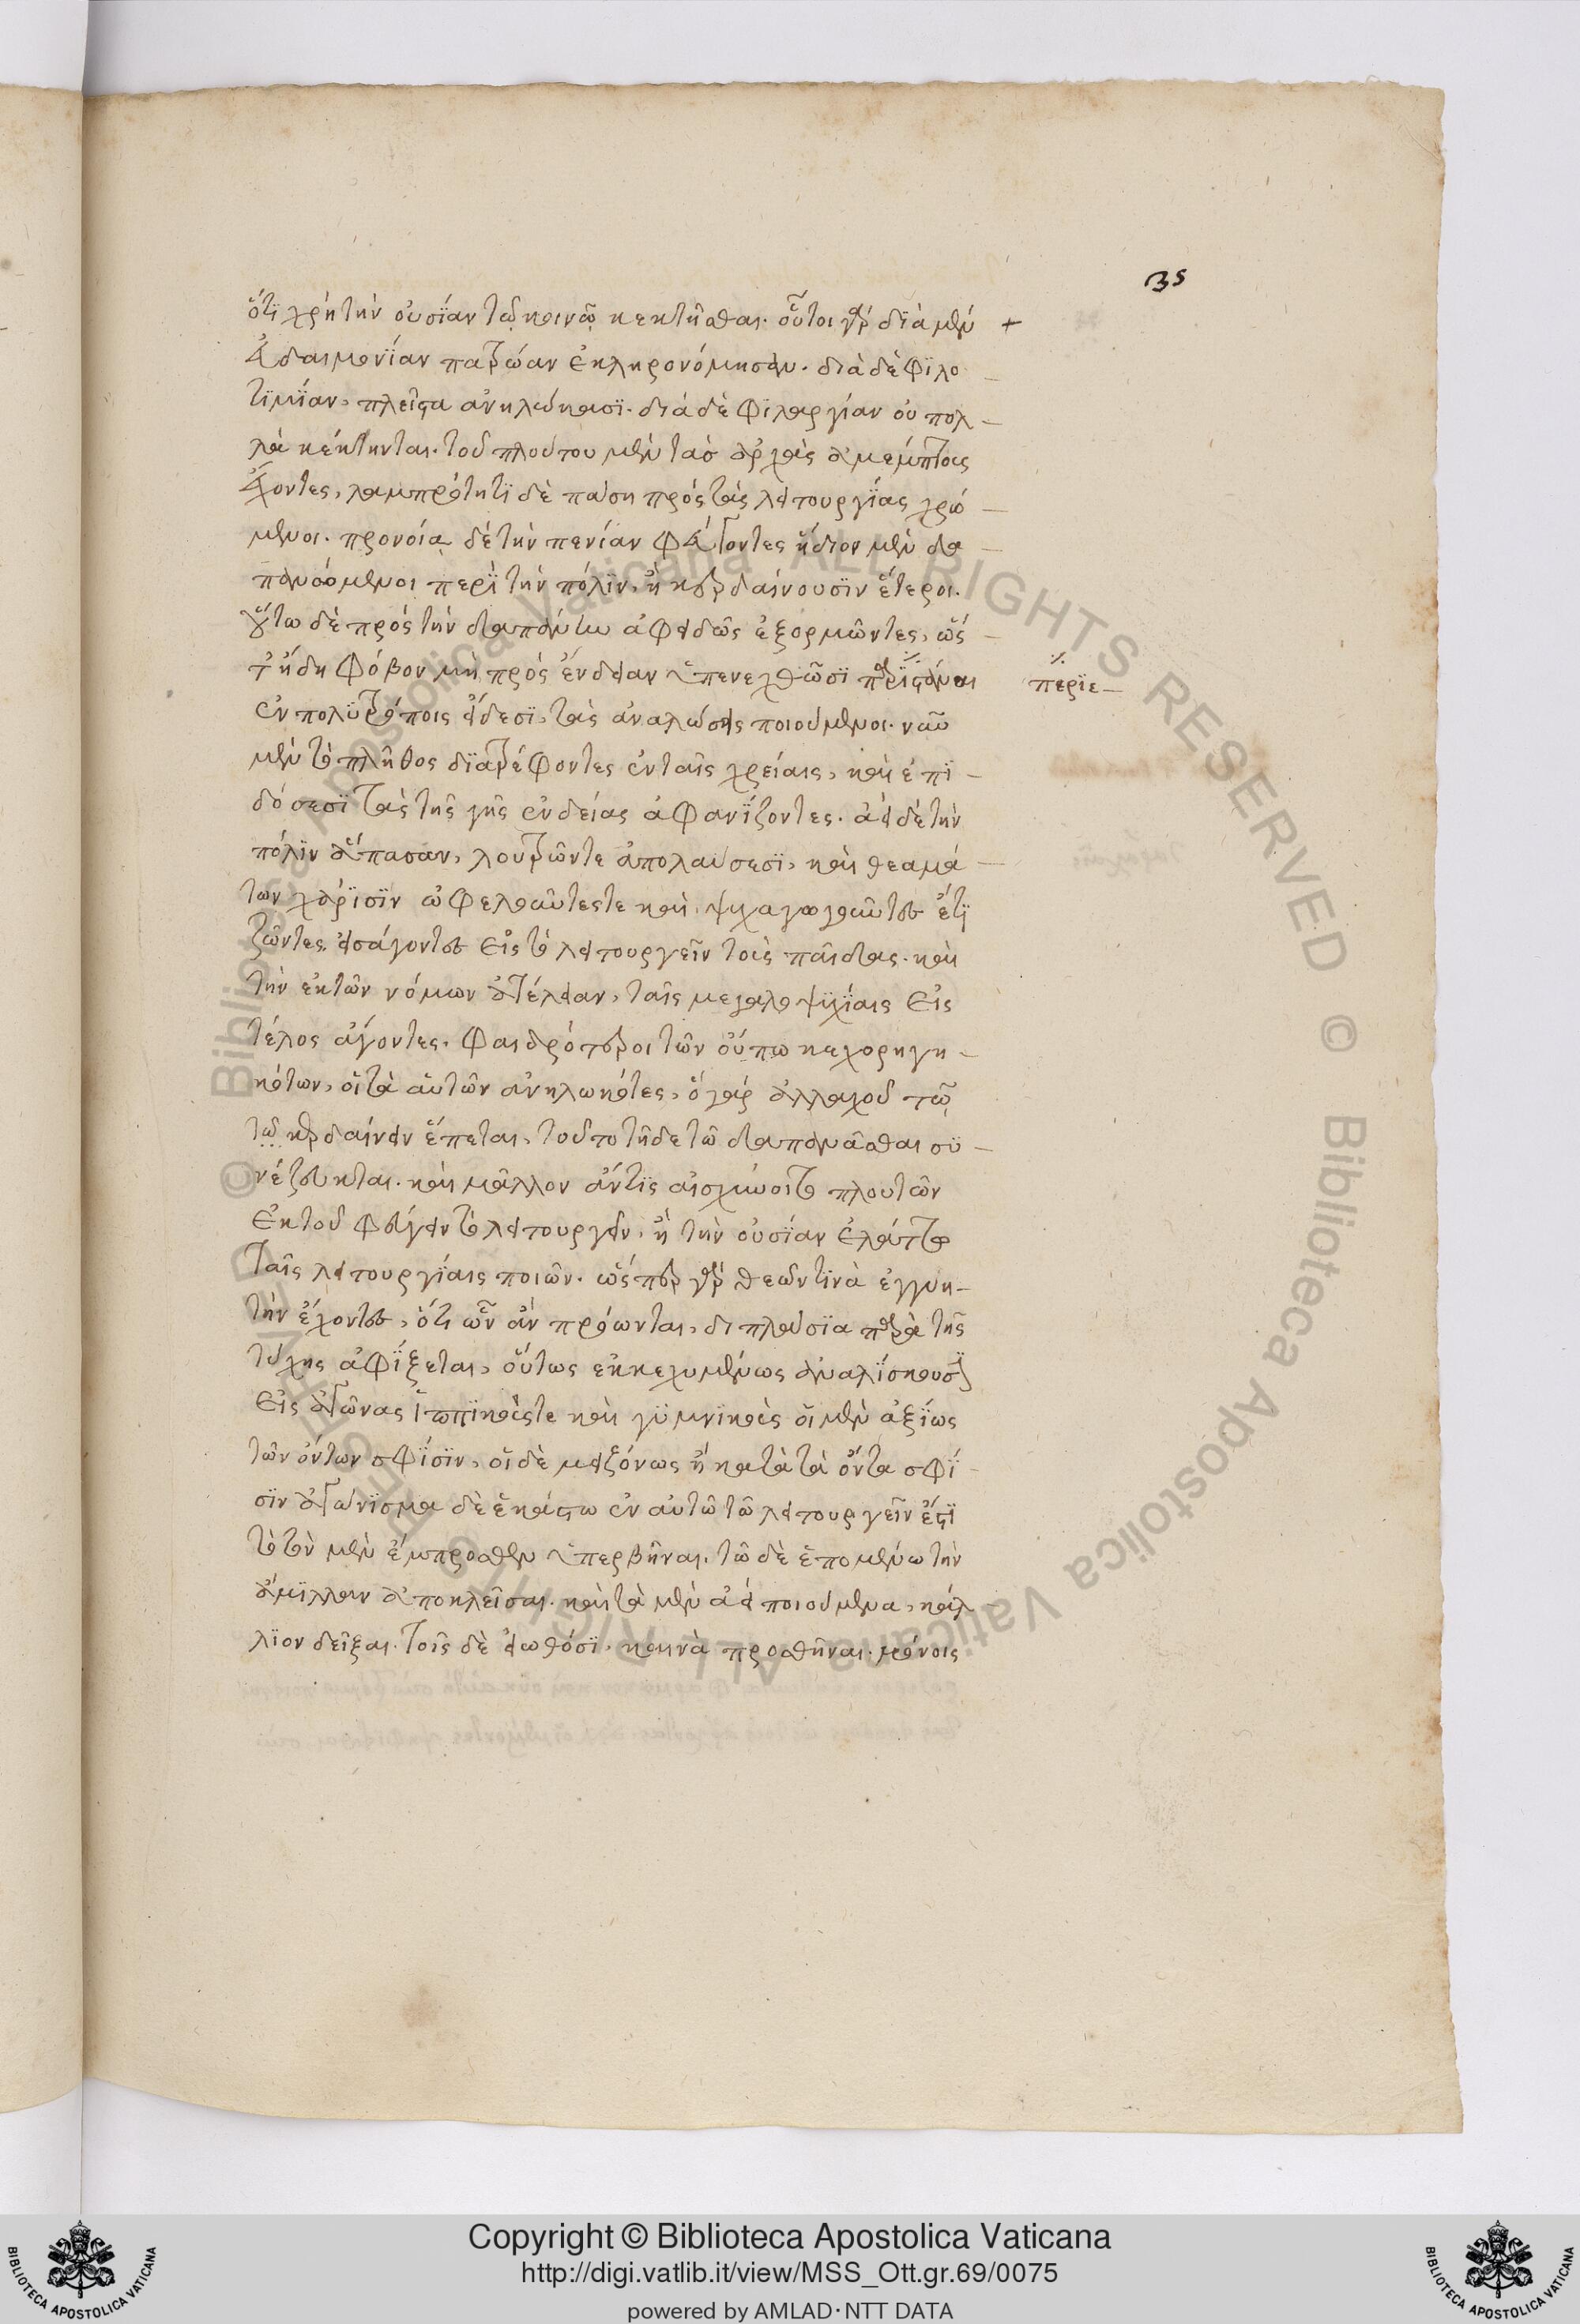 35
ὅτι χρὴ τὴν οὐσίαν τῷ κοινῷ κεκτῆσθαι. οὗτοι γὰρ διὰ μὲν +
εὐδαιμονίαν πατρώαν ἐκληρονόμησαν. διὰ δὲ φιλο
τιμίαν, πλεῖστα ἀνηλώκασι. διὰ δὲ φιλεργίαν οὐ πολ-
λὰ κέκτηνται. τοῦ πλούτου μὲν τὰς ἀρχὰς ἀμέμπτους
ἔχοντες, λαμπρότητι δὲ πάσῃ πρὸς τὰς λειτουργίας χρώ-
μενοι. προνοίᾳ δὲ τὴν πενίαν φεύγοντες ἥδιον μὲν δα-
πανώμενοι περὶ τὴν πόλιν, ἢ κερδαίνουσιν ἕτεροι.
οὕτω δὲ πρὸς τὴν δαπάνην ἀφειδῶς ἐξορμῶντες, ὥς-
τ' ἤδη φόβον μὴ πρὸς ἔνδειαν ὑπενεχθῶσι παριστάναι
περϊε-
ἐν πολυτρόποις εἴδεσι, τὰς ἀναλώσεις ποιούμενοι. νῦν
μὲν τὸ πλῆθος διατρέφοντες ἐν ταῖς χρείαις, καὶ ἐπι-
δόσεσι τὰς τῆς γῆς ἐνδείας ἀφανίζοντες. ἀεὶ δὲ τὴν
πόλιν ἅπασαν, λουτρῶν τε ἀπολαύσεσι, καὶ θεαμά-
των χάρισιν ὠφελοῦντές τε καὶ ψυχαγωγοῦντες ἔτι
ζῶντες εἰσάγοντες εἰς τὸ λειτουργεῖν τοὺς παῖδας. καὶ
τὴν ἐκ τῶν νόμων ἀτέλειαν, ταῖς μεγαλοψυχίαις εἰς
τέλος ἄγοντες. φαιδρότεροι τῶν οὔπω κεχορηγη-
κότων, οἱ τὰ αὑτῶν ἀνηλωκότες, ὃ γὰρ ἀλλαχοῦ τῷ
τῷ κερδαίνειν ἕπεται, τοῦτο τῇδε τῷ δαπανᾶσθαι συ-
νέζευκται. καὶ μᾶλλον ἄν τις αἰσχύνοιτο πλουτῶν
ἐκ τοῦ φεύγειν τὸ λειτουργεῖν, ἢ τὴν οὐσίαν ἐλάττω
ταῖς λειτουργίαις ποιῶν. ὥσπερ γὰρ θεῶν τινὰ ἐγγυη-
τὴν ἔχοντες, ὅτι ὧν ἂν πρόωνται, διπλάσια παρὰ τῆς
τύχης ἀφίξεται, οὕτως ἐκκεχυμένως ἀναλίσκουσιν
εἰς ἀγῶνας ἱππικούς τε καὶ γυμνικοὺς οἱ μὲν ἀξίως
τῶν ὄντων σφίσιν, οἱ δὲ μειζόνως ἢ κατὰ τὰ ὄντα σφί-
σιν ἀγώνισμα δὲ ἑκάστῳ ἐν αὐτῷ τῷ λειτουργεῖν ἐστὶ
τὸ τὸν μὲν ἔμπροσθεν ὑπερβῆναι. τῷ δὲ ἑπομένῳ τὴν
ἅμιλλαν ἀποκλεῖσαι. καὶ τὰ μὲν ἀεὶ ποιούμενα, κάλ-
λιον δεῖξαι. τοῖς δὲ εἰωθόσι, καινὰ προσθῆναι. μόνοις